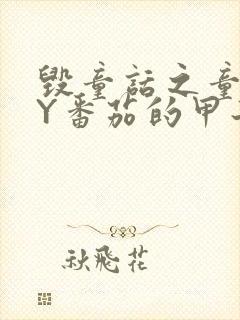 毁童话之童
Y番茄的甲
秋飛花